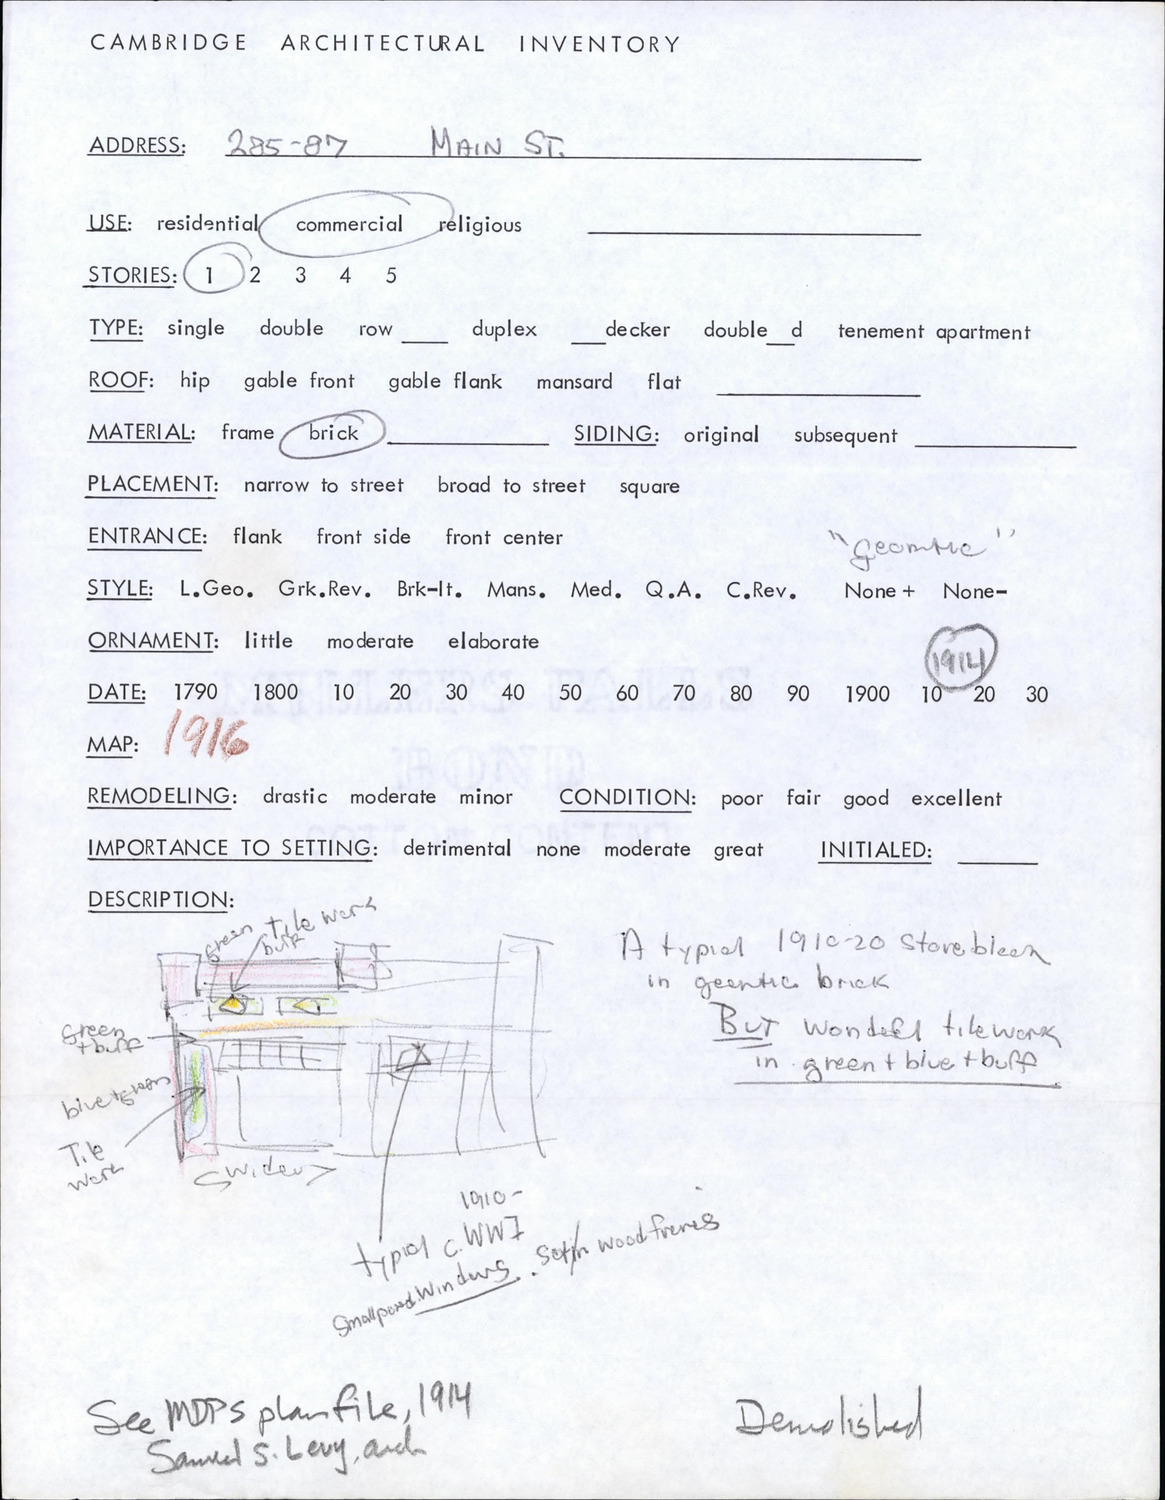 CAMBRIDGE ARCHITECTURAL INVENTORY
ADDRESS: 285-87 MAIN ST.
USE: residential commercial religious
STORIES: 1 2 3 4 5
TYPE: single double row ___ duplex ___decker double__d tenement apartment
ROOF: hip gable front gable flank mansard flat
MATERIAL: frame brick SIDING: original subsequent
PLACEMENT: narrow to street broad to street square
ENTRANCE: flank front side front center
STYLE: L.Geo. Grk.Rev. Brk-It. Mans. Med. Q.A. C.Rev. None + None-
ORNAMENT: little moderate elaborate
1914
DATE: 1790 1800 10 20 30 40 50 60 70 80 90 1900 10 20 30
MAP: 1916
REMODELING: drastic moderate minor CONDITION: poor fair good excellent
IMPORTANCE TO SETTING: detrimental none moderate great INITIALED:
DESCRIPTION:
green tile work
buff
green
+ buff
blue + green
Tile
work
A typical 1910-20 Store block
in brick
BUT wonderful tilework
in green + blue + buff
1910-
typical c. WWI
Small paned Windows. Set in wood frames
See MDPS plan file, 1914
Samuel S. Levy, arch
Demolished